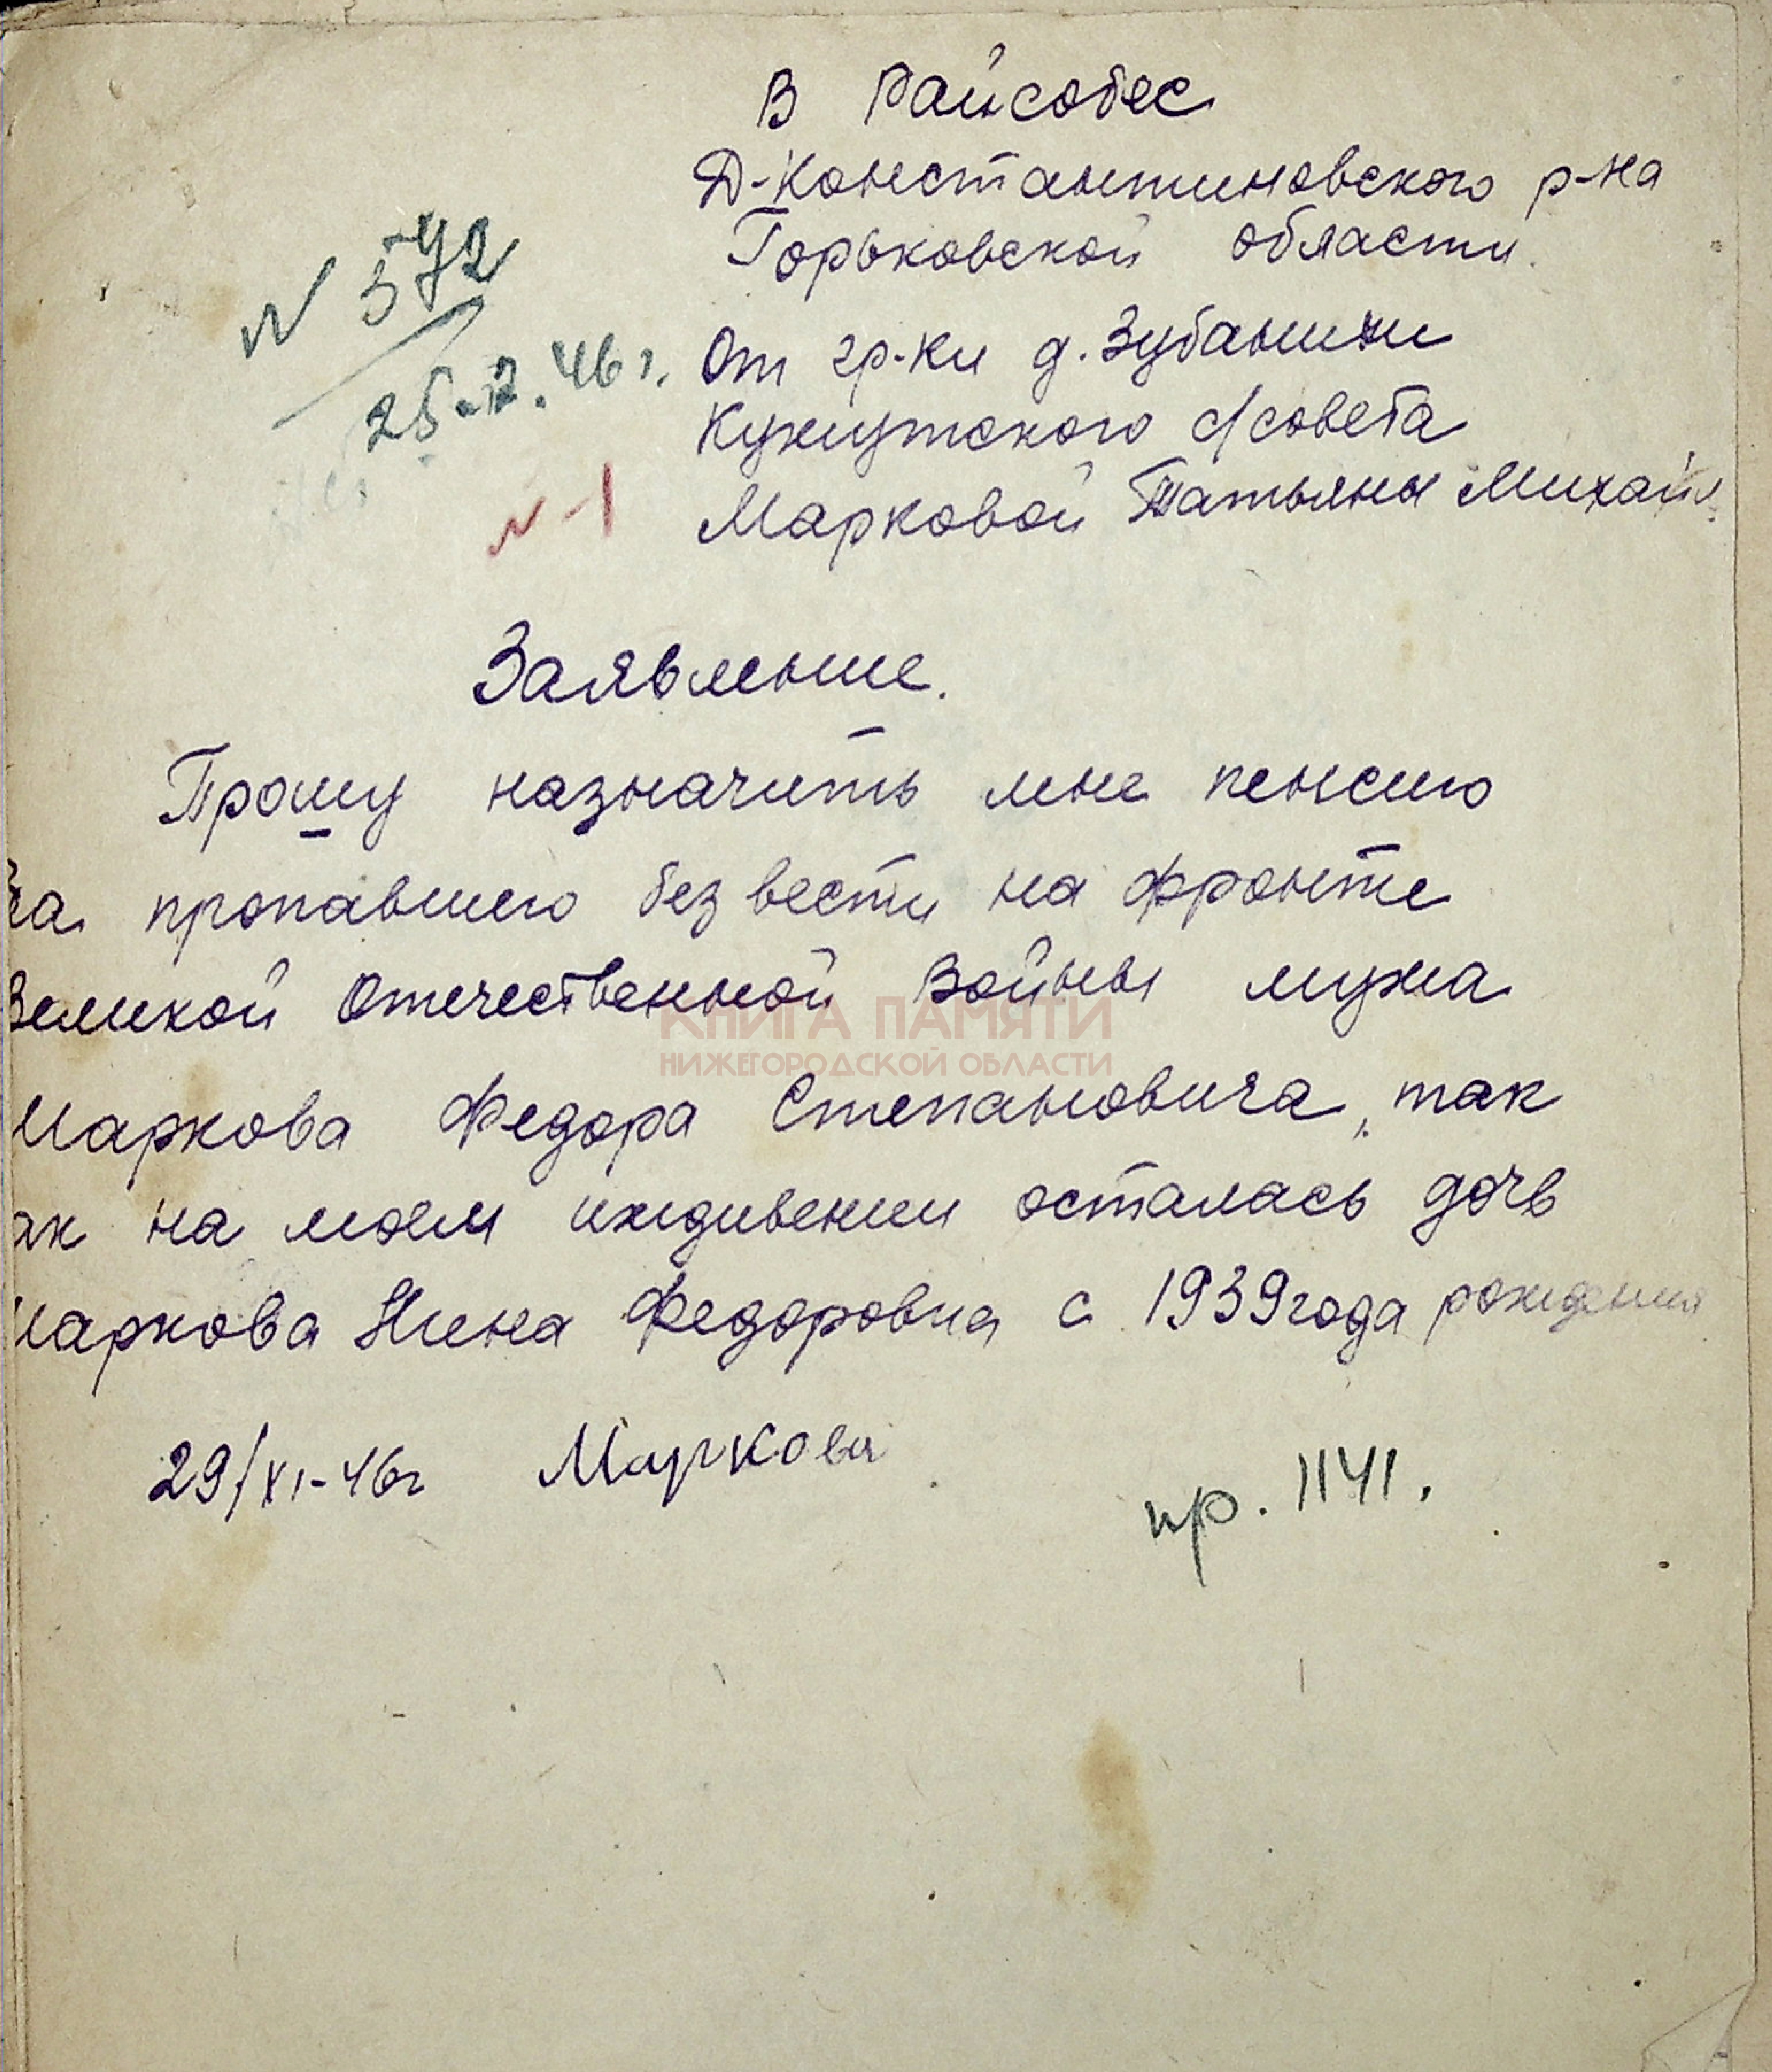 В Райсобес
Д-Константиновского р-на
Горьковской области.
N 572
25-12.46 г.
От гр-ки д. Зубанихи
с/совета
N-1
Марковой Татьяны Михайл.
Заявление.
Прошу назначить мне пенсию
за пропавшего без вести на фронте
Великой Отечественной Войны мужа
КНИГА ПАМЯТИ
НИЖЕГОРОДСКОЙ ОБЛАСТИ
Маркова Федора Степановича, так
ак на моем иждивении осталась дочь
Маркова Нина Федоровна с 1939 года рождения
29/XI-46г Маркова
пр. 1141.